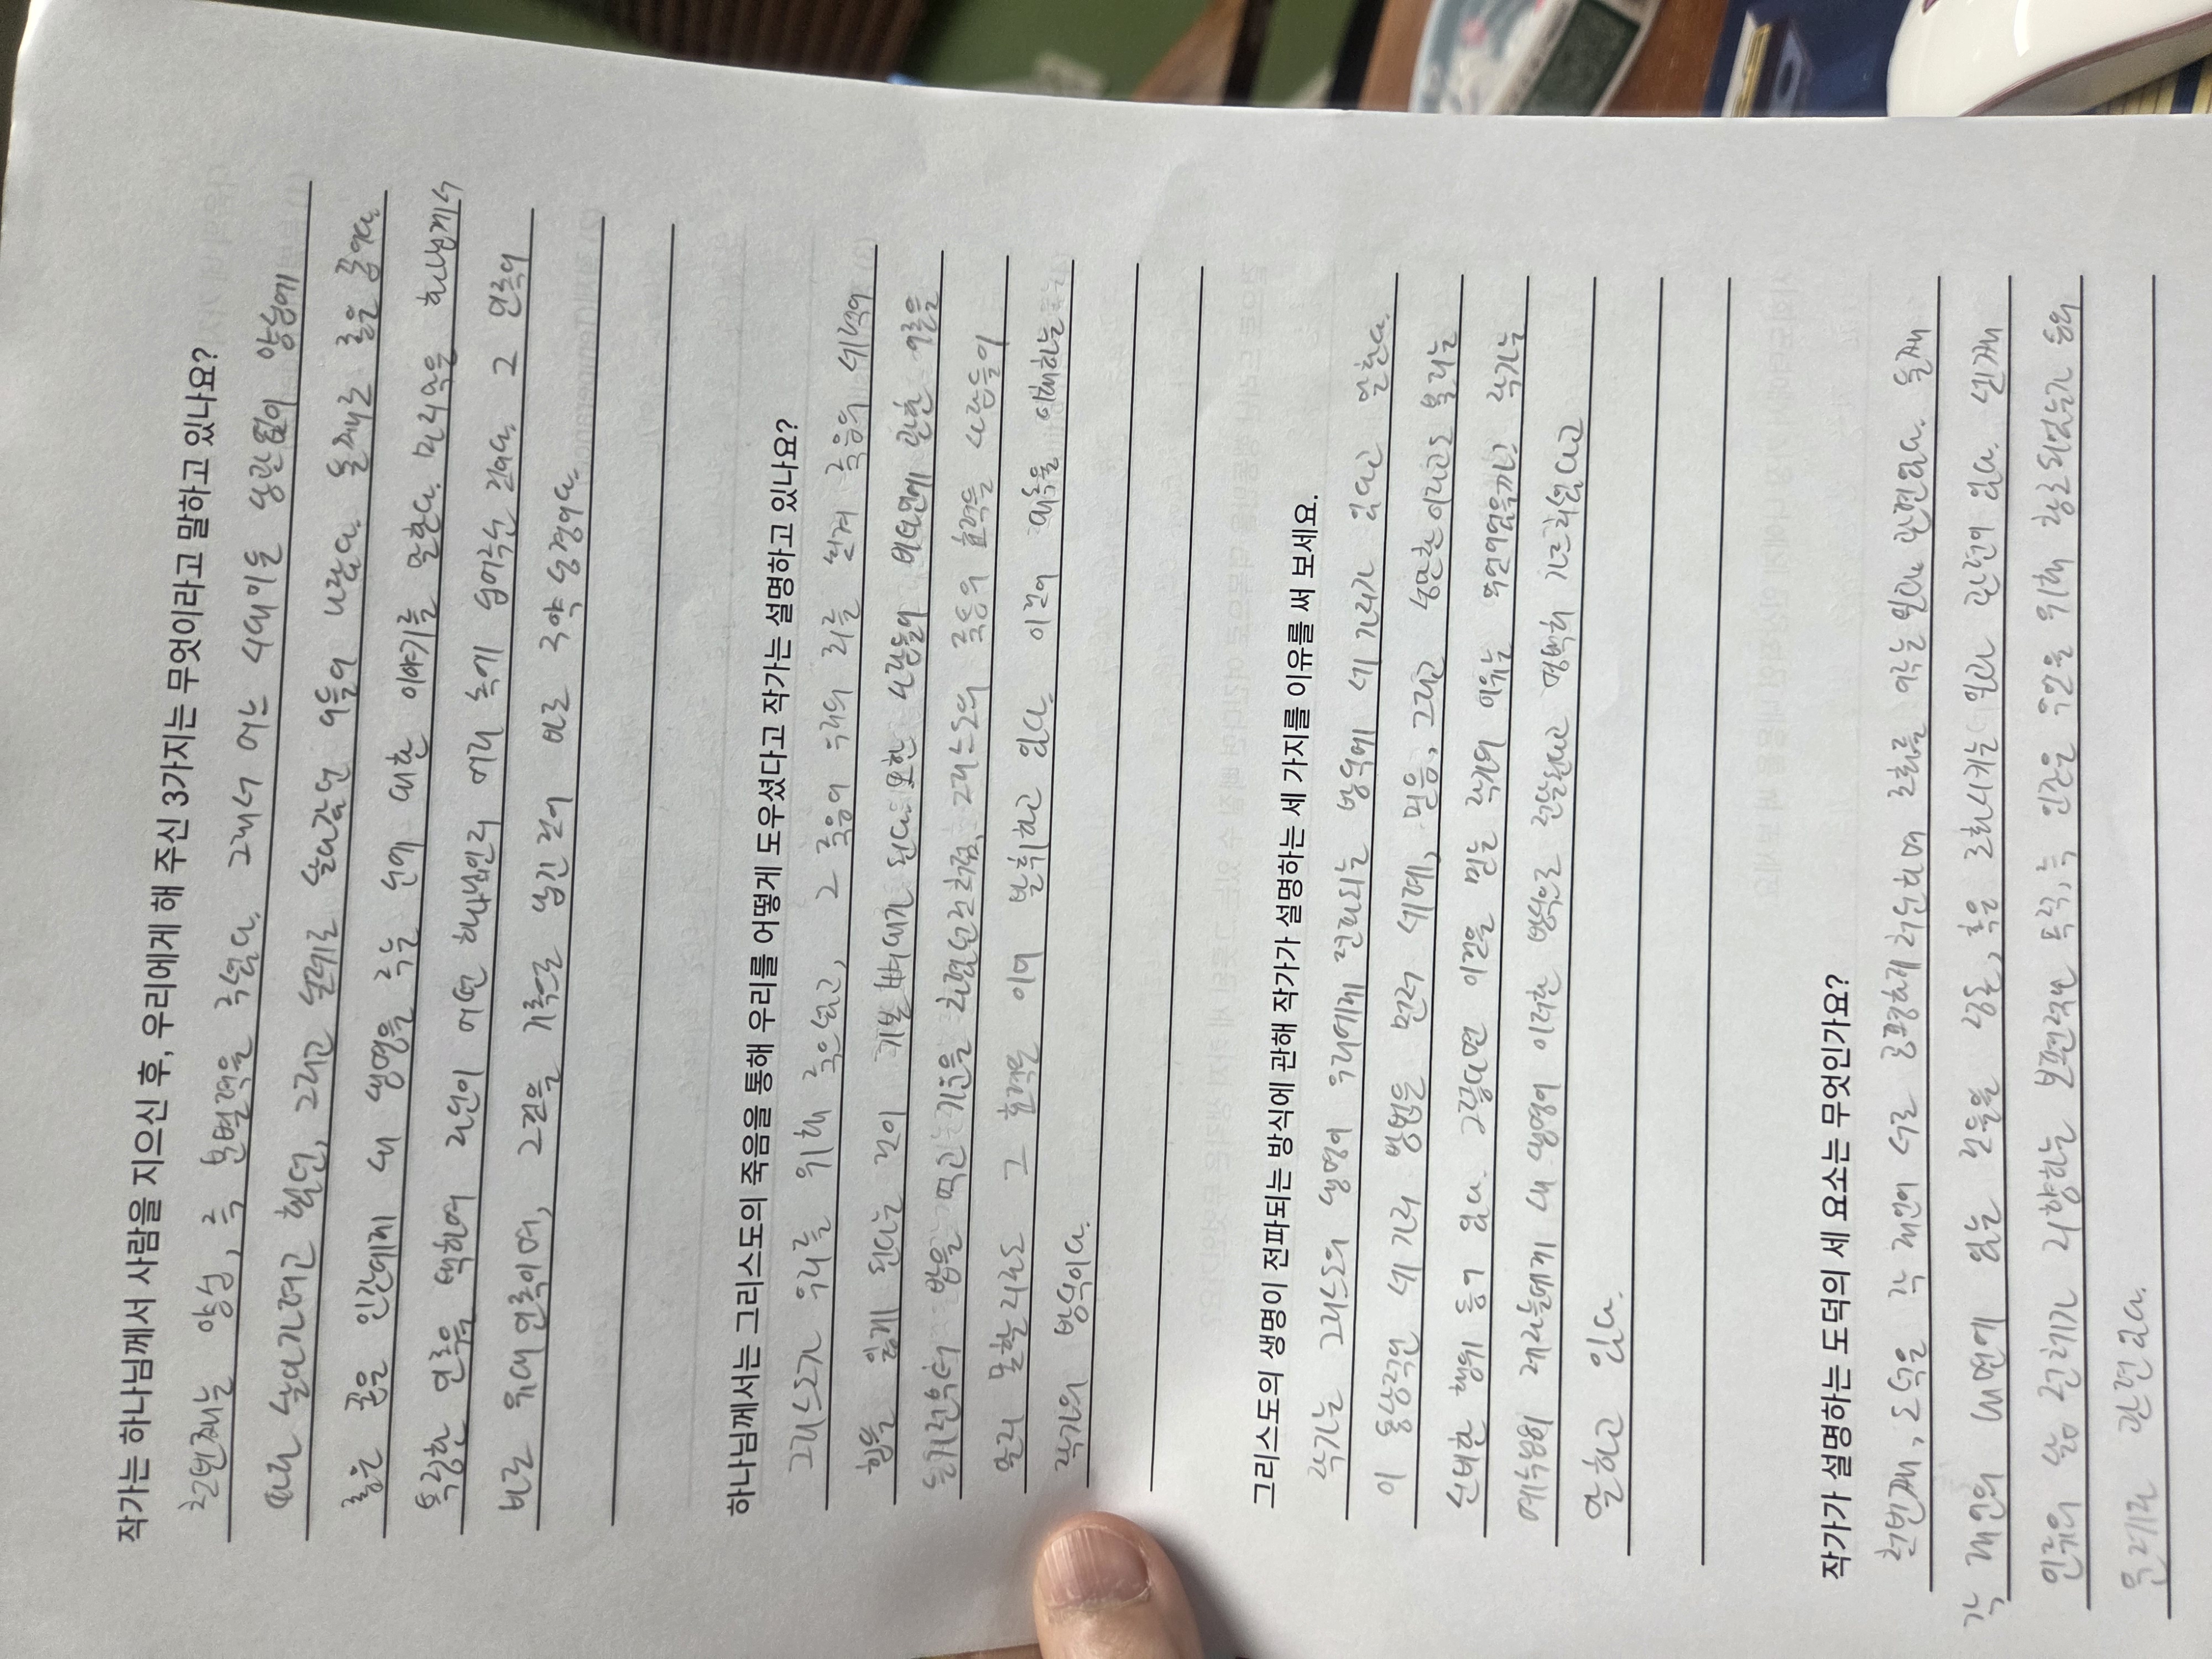 작가는 하나님께서 사람을 지으신 후, 우리에게 해 주신 3가지는 무엇이라고 말하고 있나요?
첫번째는 양심, 즉 분별력을 주셨다. 그래서 어느 시대이든 상관없이 양심에
따라 살아가려고 했던, 그리고 실제로 살아갔던 이들이 나왔다. 둘째로 좋은 꿈이다.
좋은 꿈은 인간에게 새 생명을 주는 신에 대한 이야기를 말한다. 마지막은 하나님께서
특정한 민족을 택하여 자신이 어떤 하나님인지 머리 속에 심어주신 것이다. 그 민족이
바로 유대 민족이며, 그것을 기록으로 남긴 것이 바로 구약성경이다.
하나님께서는 그리스도의 죽음을 통해 우리를 어떻게 도우셨다고 작가는 설명하고 있나요?
그리스도가 우리를 위해 죽으셨고, 그 죽음이 우리의 죄를 씻겨 죽음의 세력이
힘을 잃게 된다는 것이 기본 뼈대가 된다. 또한 사람들이 비타민에 관한 이론을
듣기 전부터 밥을 먹고 기운을 차렸던 것처럼, 그리스도의 죽음의 효력을 사람들이
몰라 말할지라도 그 효력은 이미 발휘하고 있다. 이것이 대속을 이해하는
작가의 방식이다.
그리스도의 생명이 전파되는 방식에 관해 작가가 설명하는 세 가지를 이유를 써 보세요.
작가는 그리스도의 생명이 우리에게 전파되는 방식에 세 가지가 있다고 말한다.
이 통상적인 세 가지 방법은 먼저 세례, 믿음, 그리고 성만찬이라고도 불리는
신비한 행위 등이 있다. 그렇다면 이것을 믿는 작가의 이유는 무엇이었을까? 작가는
예수님이 제자들에게 새 생명이 이러한 방식으로 전달된다고 명백히 가르치셨다고
말하고 있다.
작가가 설명하는 도덕의 세 요소는 무엇인가요?
첫번째, 도덕은 각 개인이 서로 공평하게 처신하며 조화를 이루는 일과 관련있다. 둘째
각 개인의 내면에 있는 것들을 정돈, 혹은 조화시키는 일과 관련이 있다. 셋째
인류의 삶 전체가 지향하는 보편적인 목적, 즉 인간은 무엇을 위해 창조되었는가 등의
문제와 관련 있다.